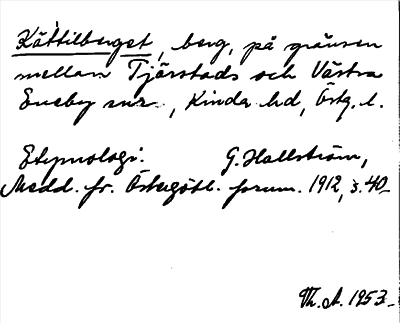 Kättilberget, berg, på gränsen
mellan Tjärstads och Västra
Eneby snr, Kinda hd, Östg. l.
Etymologi: G. Hallström,
Medd. fr. Östergötl. fornm. 1912, s. 40
Th. A. 1953